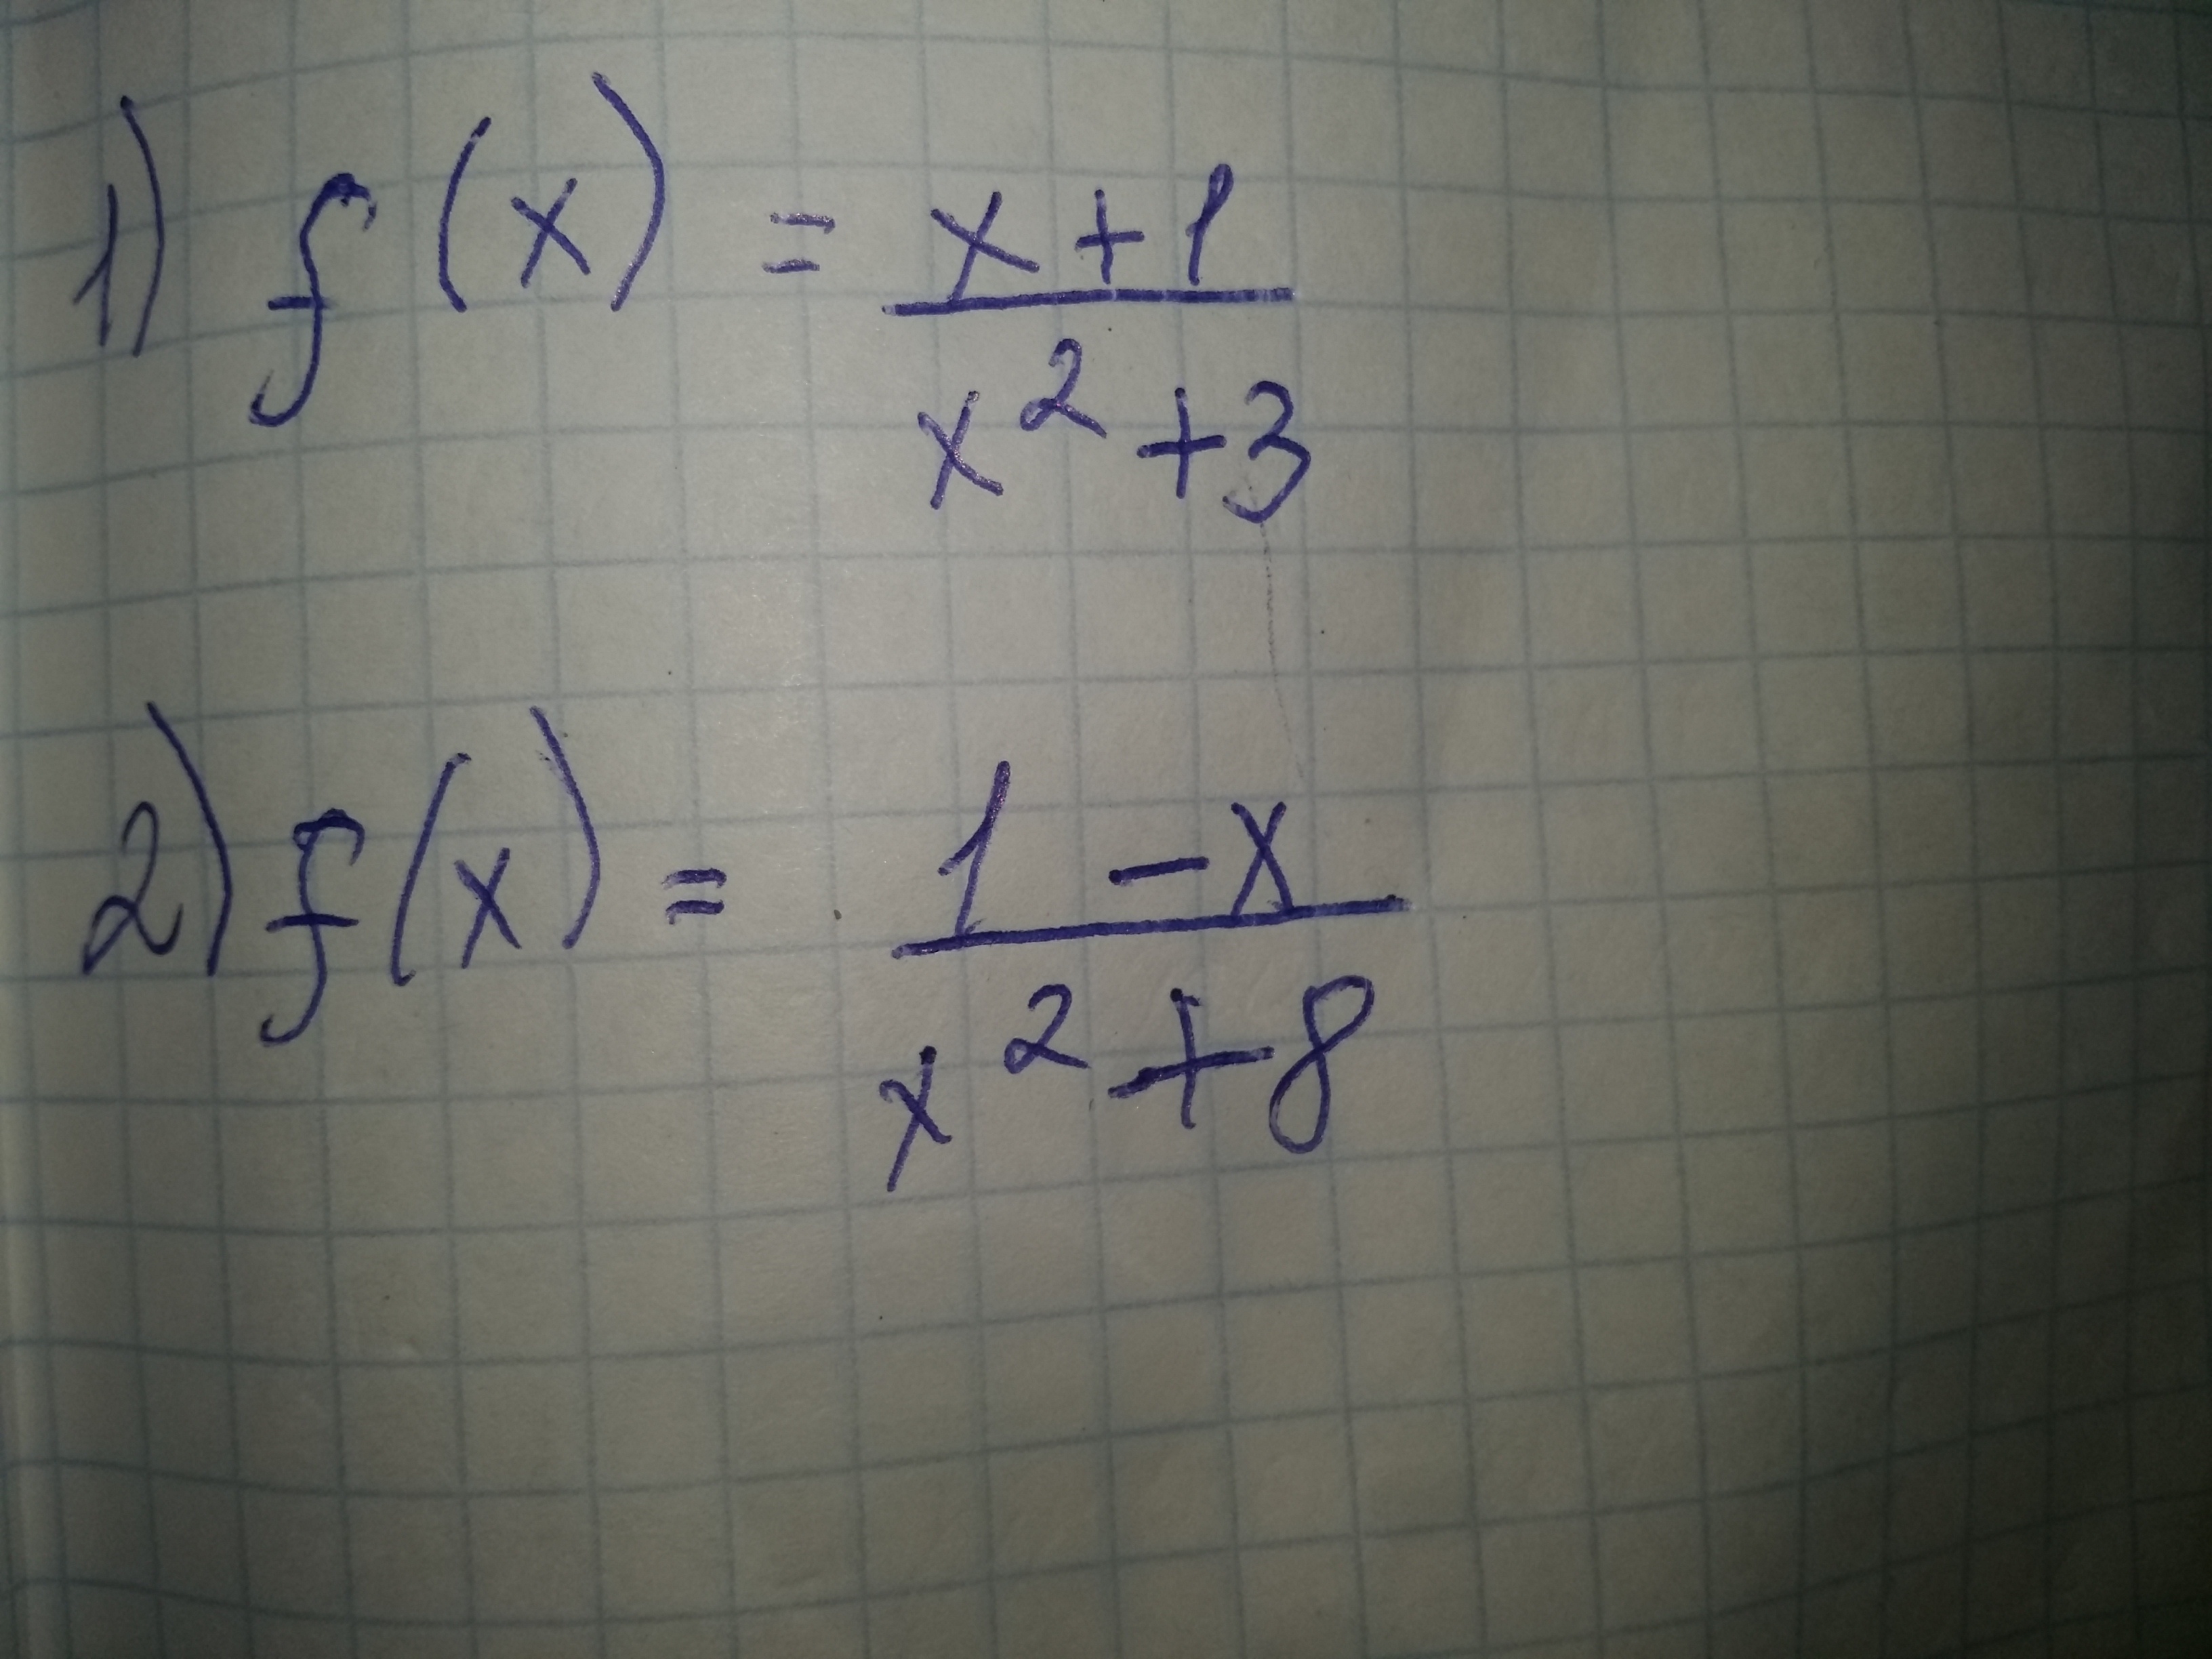 1) f(x) = (x+1)/(x²+3)
2) f(x) = (1-x)/(x²+8)